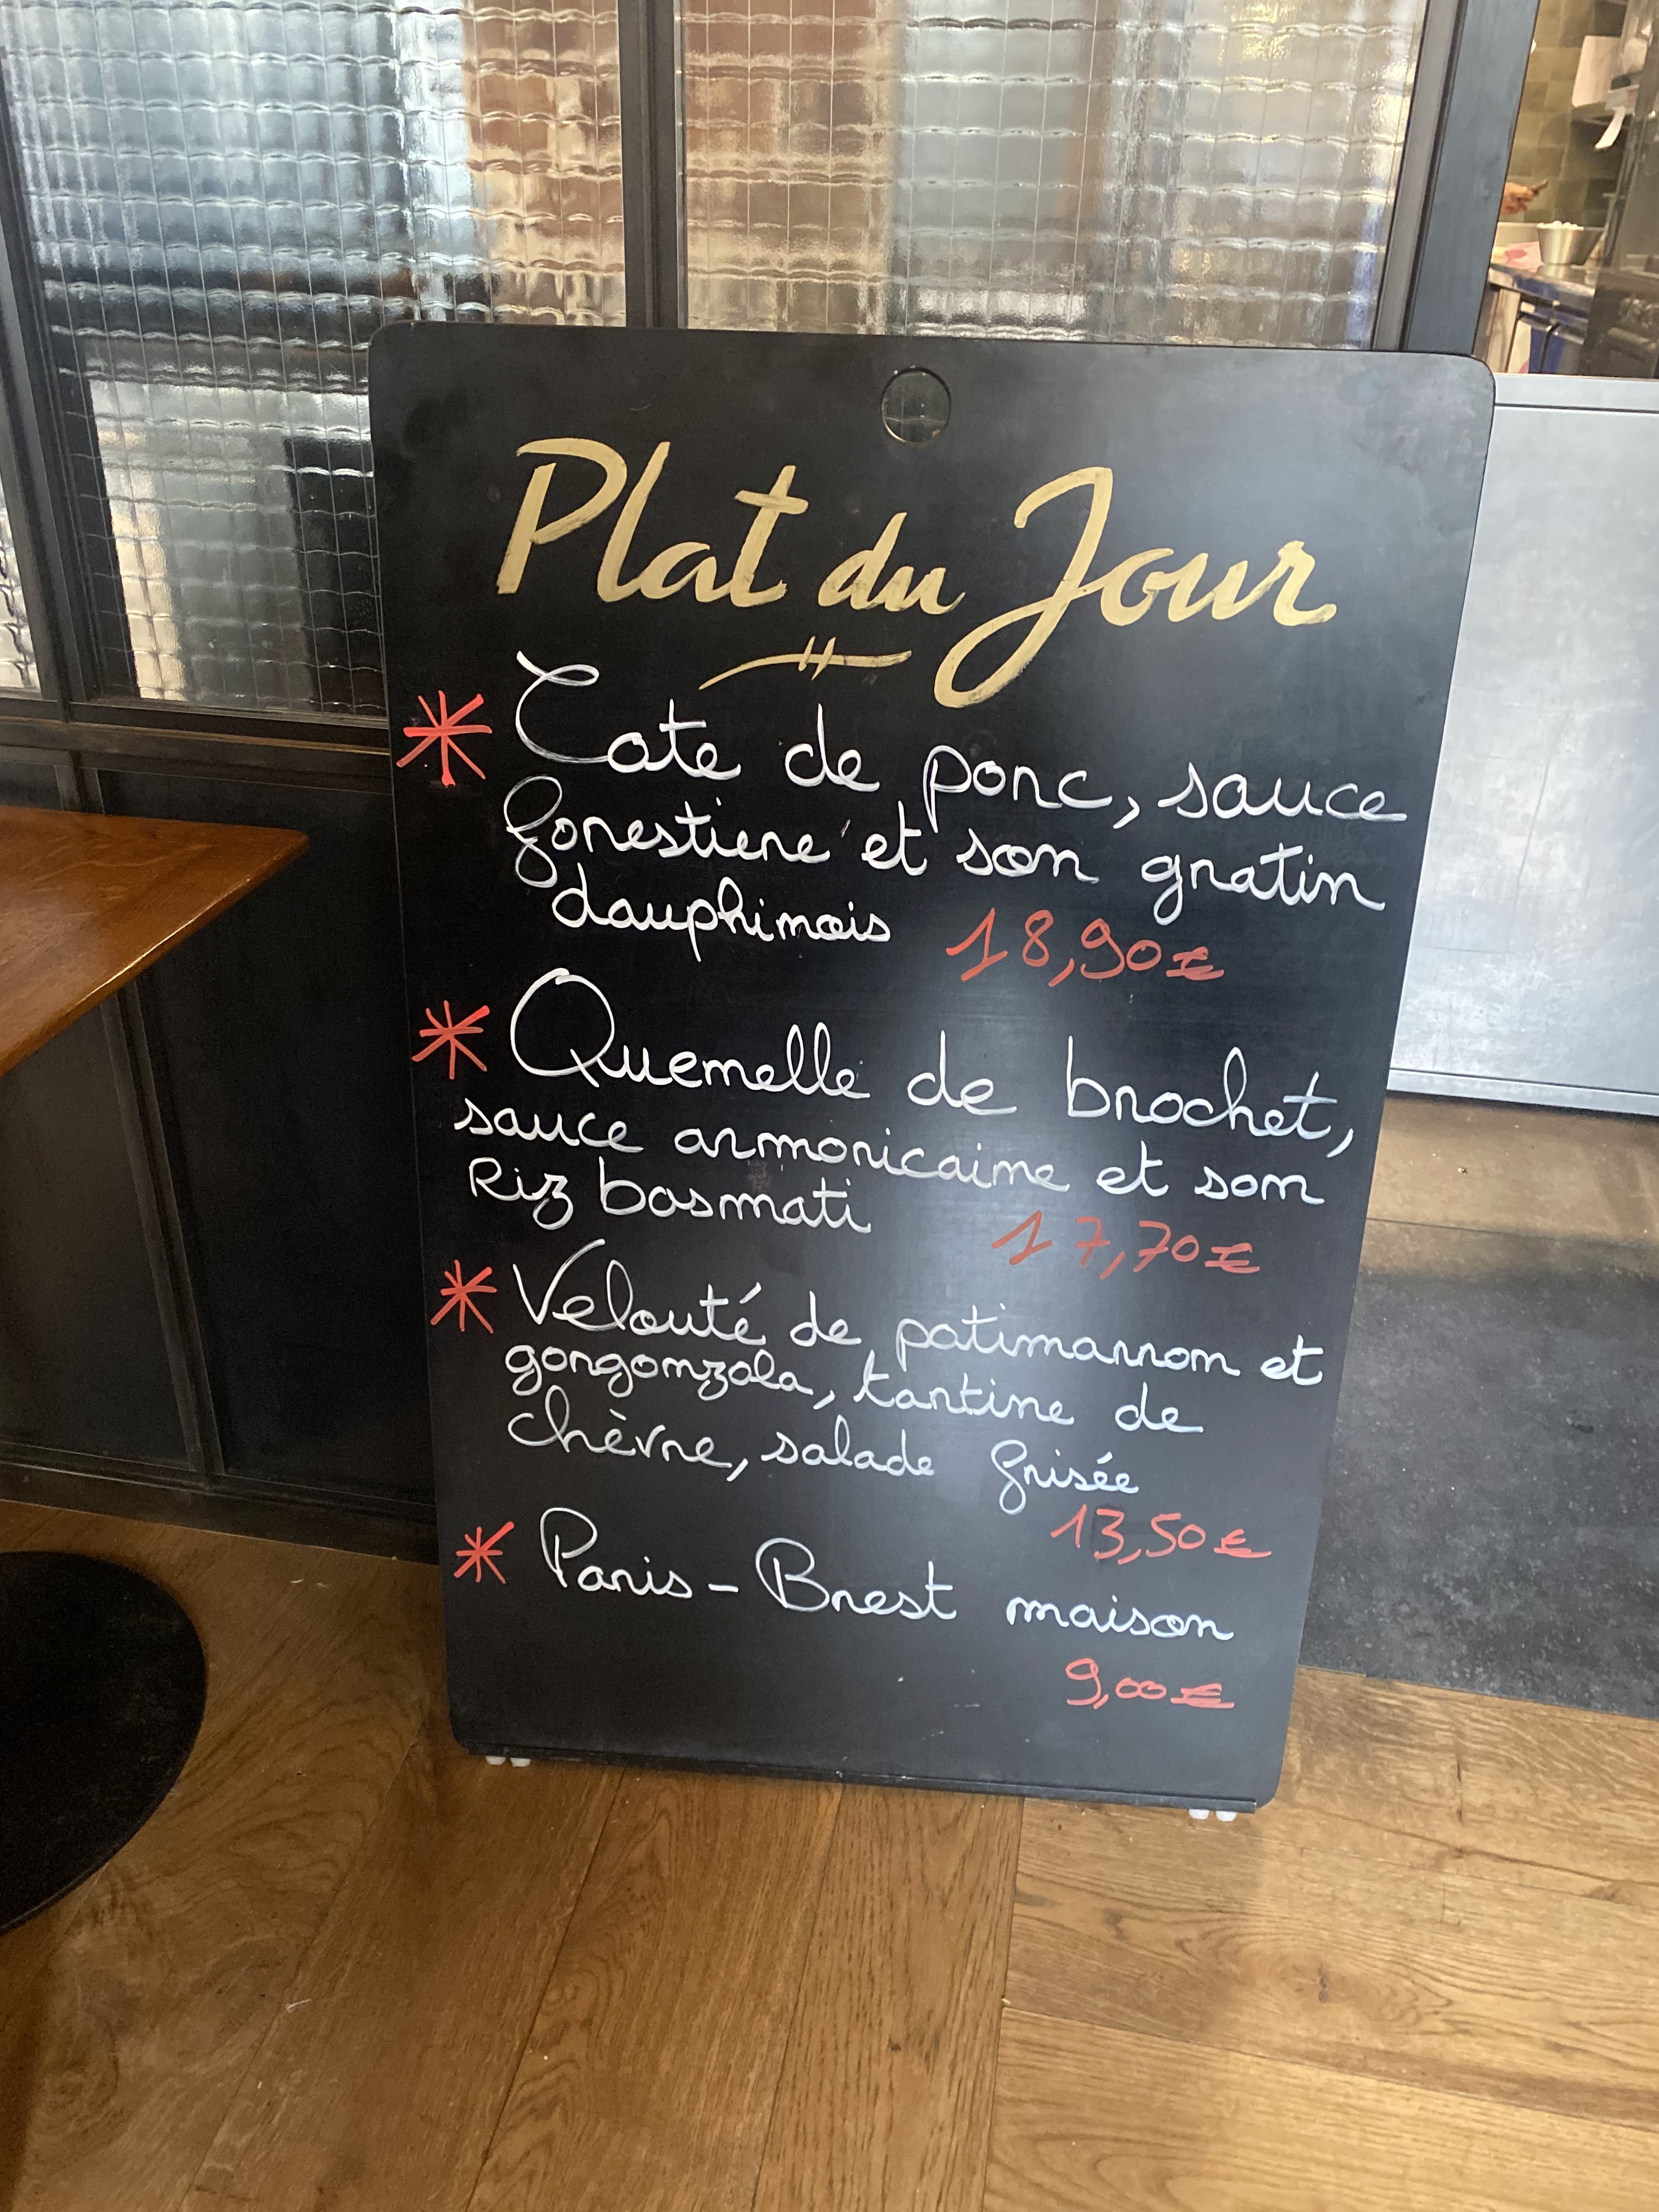 Plat du Jour
* Cote de porc, sauce
forestiere et son gratin
dauphinois 18,90€
* Quenelle de brochet,
sauce armoricaine et son
Riz basmati 17,70€
* Velouté de patimarron et
gorgonzola, tartine de
chèvre, salade frisée
13,50€
* Paris-Brest maison
9,00€